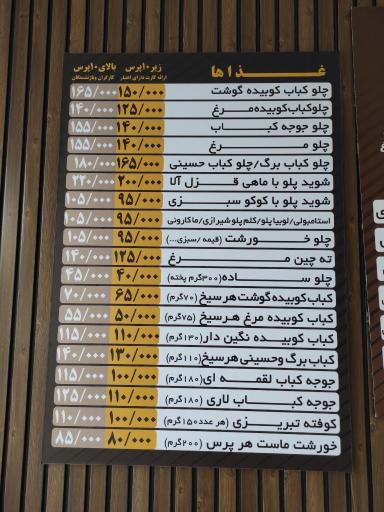 غـــذاها زیر۱۰پرس بالای۱۰پرس
ارائه کارت دارای اعتبار کارگران وبازنشستگان
چلو کباب کوبیده گوشت ۱۵۰/۰۰۰ ۱۶۵/۰۰۰
چلوکباب‌کوبیده‌مـــرغ ۱۲۵/۰۰۰ ۱۴۰/۰۰۰
چلو جوجه کبـــاب ۱۴۰/۰۰۰ ۱۵۵/۰۰۰
چلو مـــرغ ۱۴۰/۰۰۰ ۱۵۵/۰۰۰
چلو کباب برگ/چلو کباب حسینی ۱۶۵/۰۰۰ ۱۸۰/۰۰۰
شوید پلو با ماهی قـزل آلا ۲۰۰/۰۰۰ ۲۲۰/۰۰۰
شوید پلو با کوکو سبـــزی ۹۵/۰۰۰ ۱۰۵/۰۰۰
استامبولی/لوبیا پلو/کلم‌پلوشیرازی/ماکارونی ۹۵/۰۰۰ ۱۰۵/۰۰۰
چلو خـــورشت (قیمه /سبزی...) ۹۵/۰۰۰ ۱۰۵/۰۰۰
ته چین مـــرغ ۱۲۵/۰۰۰ ۱۴۰/۰۰۰
چلو ســـاده(۳۰۰گرم پخته) ۴۰/۰۰۰ ۴۵/۰۰۰
کباب‌کوبیده‌گوشت‌هرسیخ (۷۰گرم) ۶۵/۰۰۰ ۷۰/۰۰۰
کباب کوبیده مرغ هرسیخ (۷۵گرم) ۵۰/۰۰۰ ۵۵/۰۰۰
کباب کوبیده نگین دار(۱۳۰گرم) ۱۱۰/۰۰۰ ۱۱۵/۰۰۰
کباب‌برگ وحسینی‌هرسیخ(۱۱۰گرم) ۱۳۰/۰۰۰ ۱۴۰/۰۰۰
جوجه کباب لقمـــه ای(۱۸۰گرم) ۱۰۰/۰۰۰ ۱۱۵/۰۰۰
جوجه کبـــاب لاری (۱۸۰گرم) ۱۱۰/۰۰۰ ۱۲۵/۰۰۰
کوفته تبریـــزی (هر عدد۱۵۰گرم) ۱۰۰/۰۰۰ ۱۱۰/۰۰۰
خورشت ماست هر پرس (۲۰۰گرم) ۸۰/۰۰۰ ۸۵/۰۰۰